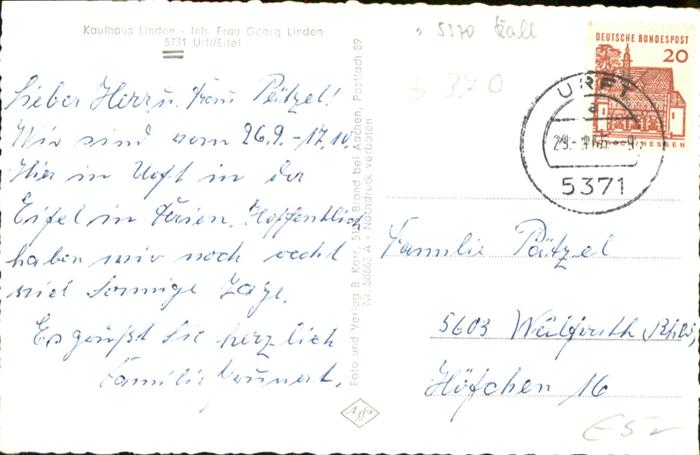 Kaufhaus Linden - Inh. Frau Georg Linden
5731 Urft/Eifel
Lieber Herr u. Frau Pätzel!
Wir sind vom 26.9. - 17.10.
Hier in Urft in der
Eifel in Ferien. Hoffentlich
haben wir noch recht
viel sonnige Tage.
Es grüßt Sie herzlich
Familie
Foto und Verlag B. Korr, 51 Brand bei Aachen, Postfach 89
Nr. 58662 A · Nachdruck verboten
Agfa
5370 Kall
5370
DEUTSCHE BUNDESPOST
20
HESSEN
URFT
a
5371
Familie Pätzel
5603 Wülfrath (Rhld.)
Höfchen 16